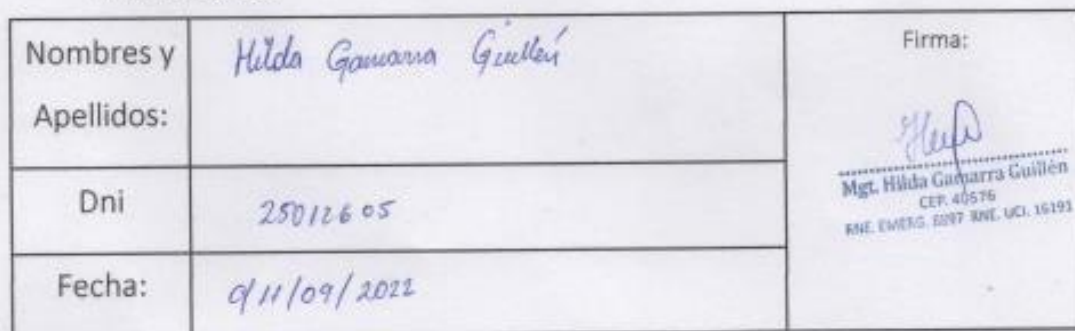 Nombres y
Apellidos:
Hilda Gamarra Guillén
Firma:
Mgt. Hilda Gamarra Guillén
CEP. 40576
RNE. EMERG. RNE. UCI. 16191
Dni
25012605
Fecha:
11/09/2022